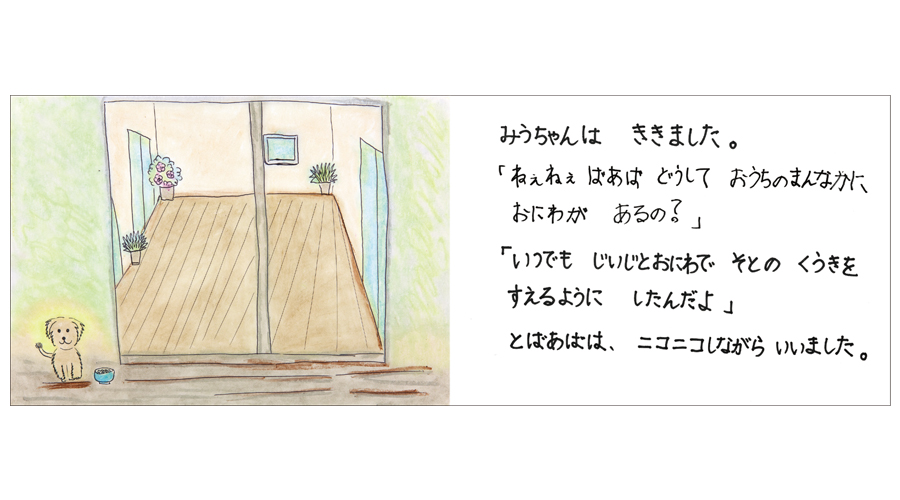 みうちゃんは ききました。
「ねぇねぇ ばあば どうして おうちのまんなかに、
おにわが あるの？」
「いつでも じいじとおにわで そとの くうきを
すえるように したんだよ」
とばあばは、ニコニコしながら いいました。